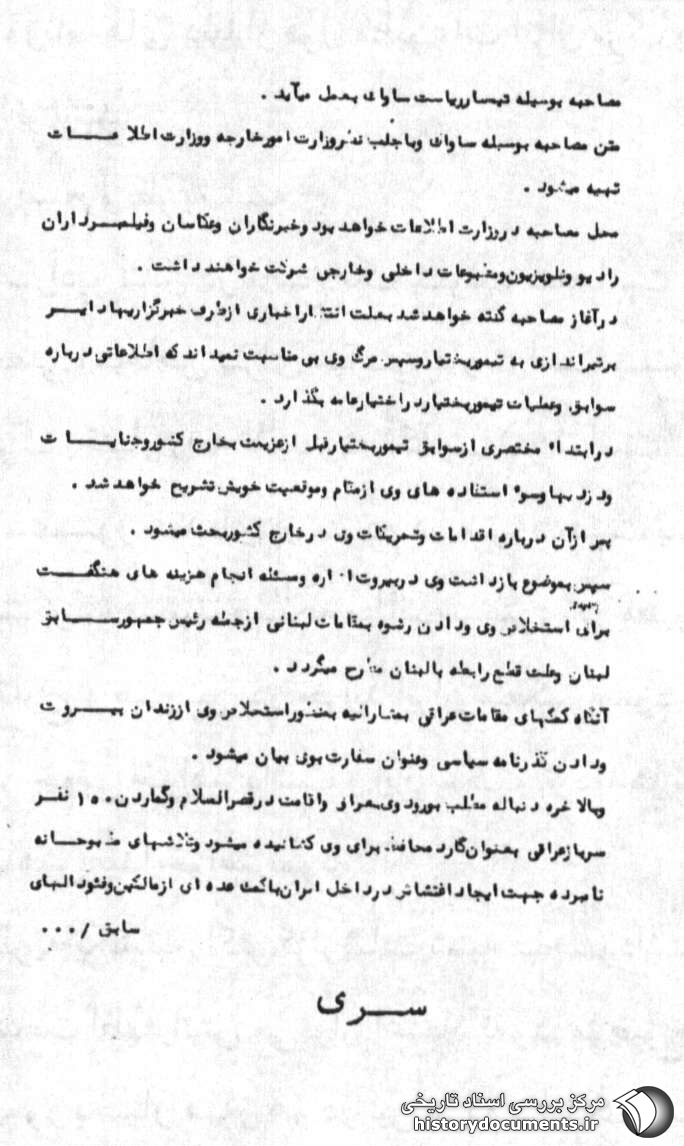 مصاحبه بوسیله تیمسار ریاست ساواک بعمل میآید .
متن مصاحبه بوسیله ساواک وباجلب نظروزارت امورخارجه ووزارت اطلاعـــات
تهیه میشود .
محل مصاحبه دروزارت اطلاعات خواهد بود وخبرنگاران وعکاسان وفیلمبرداران
رادیو وتلویزیون ومطبوعات داخلی وخارجی شرکت خواهند داشت .
درآغاز مصاحبه گفته خواهد شد بعلت انتشاراخباری ازطرف خبرگزاریها دایـــر
برتیراندازی به تیموربختیاروسپس مرگ وی بی مناسبت نمیداند که اطلاعاتی درباره
سوابق وعملیات تیموربختیاردراختیارعامه بگذارد .
درابتداء مختصری ازسوابق تیموربختیارقبل ازعزیمت بخارج کشوروجنایـــات
ودزدیهاوسوء استفاده های وی ازمقام وموقعیت خویش تشریح خواهد شد .
پس ازآن درباره اقدامات وتحریکات وی درخارج کشوربحث میشود .
سپس بموضوع بازداشت وی دربیروت اشاره ومسئله انجام هزینه های هنگفـــت
برای استخلاص وی ودادن رشوه بمقامات لبنانی ازجمله رئیس جمهورســـابق
لبنان وعلت قطع رابطه بالبنان مطرح میگردد .
آنگاه کمکهای مقامات عراقی بمشارالیه بمنظوراستخلاص وی اززندان بیـــروت
ودادن گذرنامه سیاسی وعنوان سفارت بوی بیان میشود .
وبالاخره دنباله مطلب بورود وی بعراق واقامت درقصرالسلام وگماردن ۱۵۰ نفـــر
سربازعراقی بعنوان گارد محافظ برای وی کشانیده میشود وتلاشهای مذبوحـــانه
نامبرده جهت ایجاد اغتشاش درداخل ایران باکمک عده ای ازمالکین وفئودالهای
سابق /...
ســـری
مرکز بررسی اسناد تاریخی
historydocuments.ir